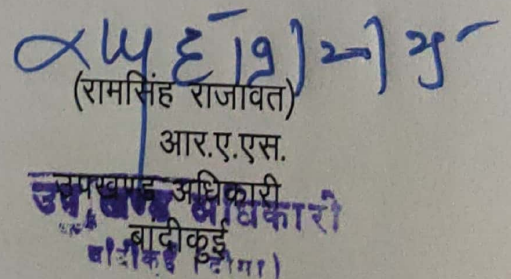 (रामसिंह राजावत)
आर.ए.एस.
उपखण्ड अधिकारी
बांदीकुई
उप खण्ड अधिकारी
बांदीकुई (दौसा)